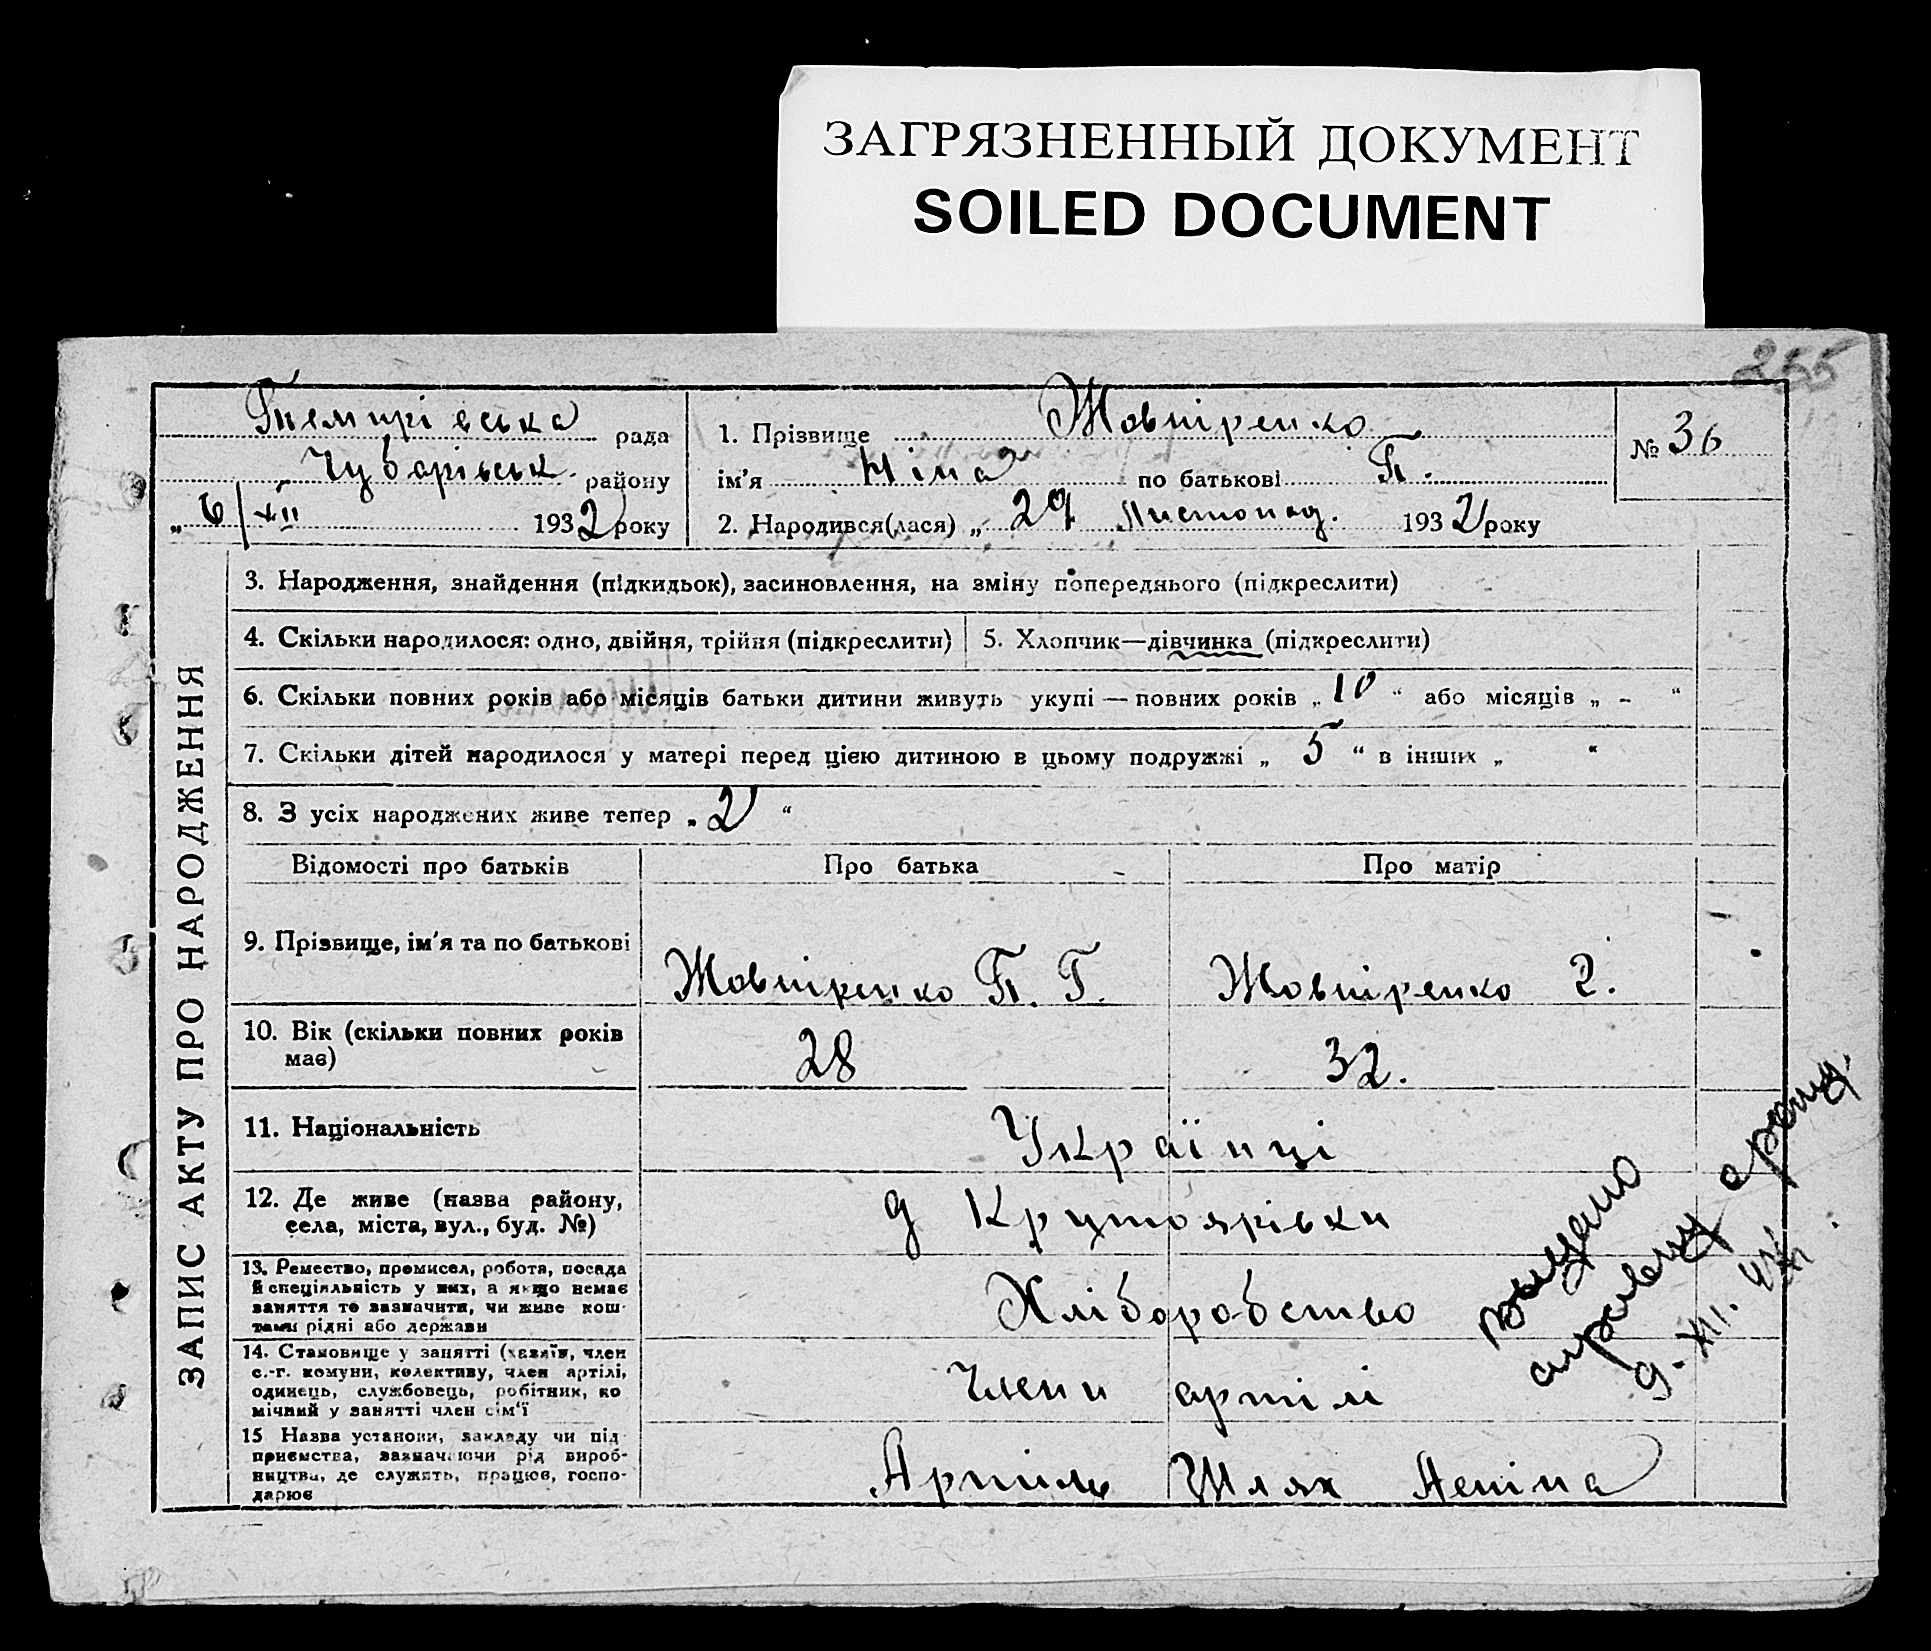 ЗАГРЯЗНЕННЫЙ ДОКУМЕНТ
SOILED DOCUMENT
255
Темирівська рада
Чубарівськ району
„ 6/XII 1932 року
1. Прізвище Жовтіренко
ім'я Ніна по батькові П.
2. Народився(лася) „ 29 Листопад. 1932 року
№ 36
ЗАПИС АКТУ ПРО НАРОДЖЕННЯ
3. Народження, знайдення (підкидьок), засиновлення, на зміну попереднього (підкреслити)
4. Скільки народилося: одно, двійня, трійня (підкреслити) 5. Хлопчик—дівчинка (підкреслити)
6. Скільки повних років або місяців батьки дитини живуть укупі — повних років „ 10 “ або місяців „ - “
7. Скільки дітей народилося у матері перед цією дитиною в цьому подружжі „ 5 “ в інших „ “
8. З усіх народжених живе тепер „ 2 “
Відомості про батьків Про батька Про матір
9. Прізвище, ім'я та по батькові Жовтіренко П. Г. Жовтіренко
10. Вік (скільки повних років має) 28 32.
11. Національність Українці
12. Де живе (назва району, села, міста, вул., буд. №) д Крутоярівки
13. Ремество, промисел, робота, посада й спеціяльність у них, а якщо немає заняття то зазначити, чи живе коштами рідні або держави Хліборобство
14. Становище у занятті (хазяїн, член с.-г. комуни, колективу, член артілі, одинець, службовець, робітник, помічний у занятті член сім'ї Члени артілі
15 Назва установи, закладу чи підприємства, зазначаючи рід виробництва, де служить, працює, господарює Артиль Шлях Леніна
видано
9. XII.